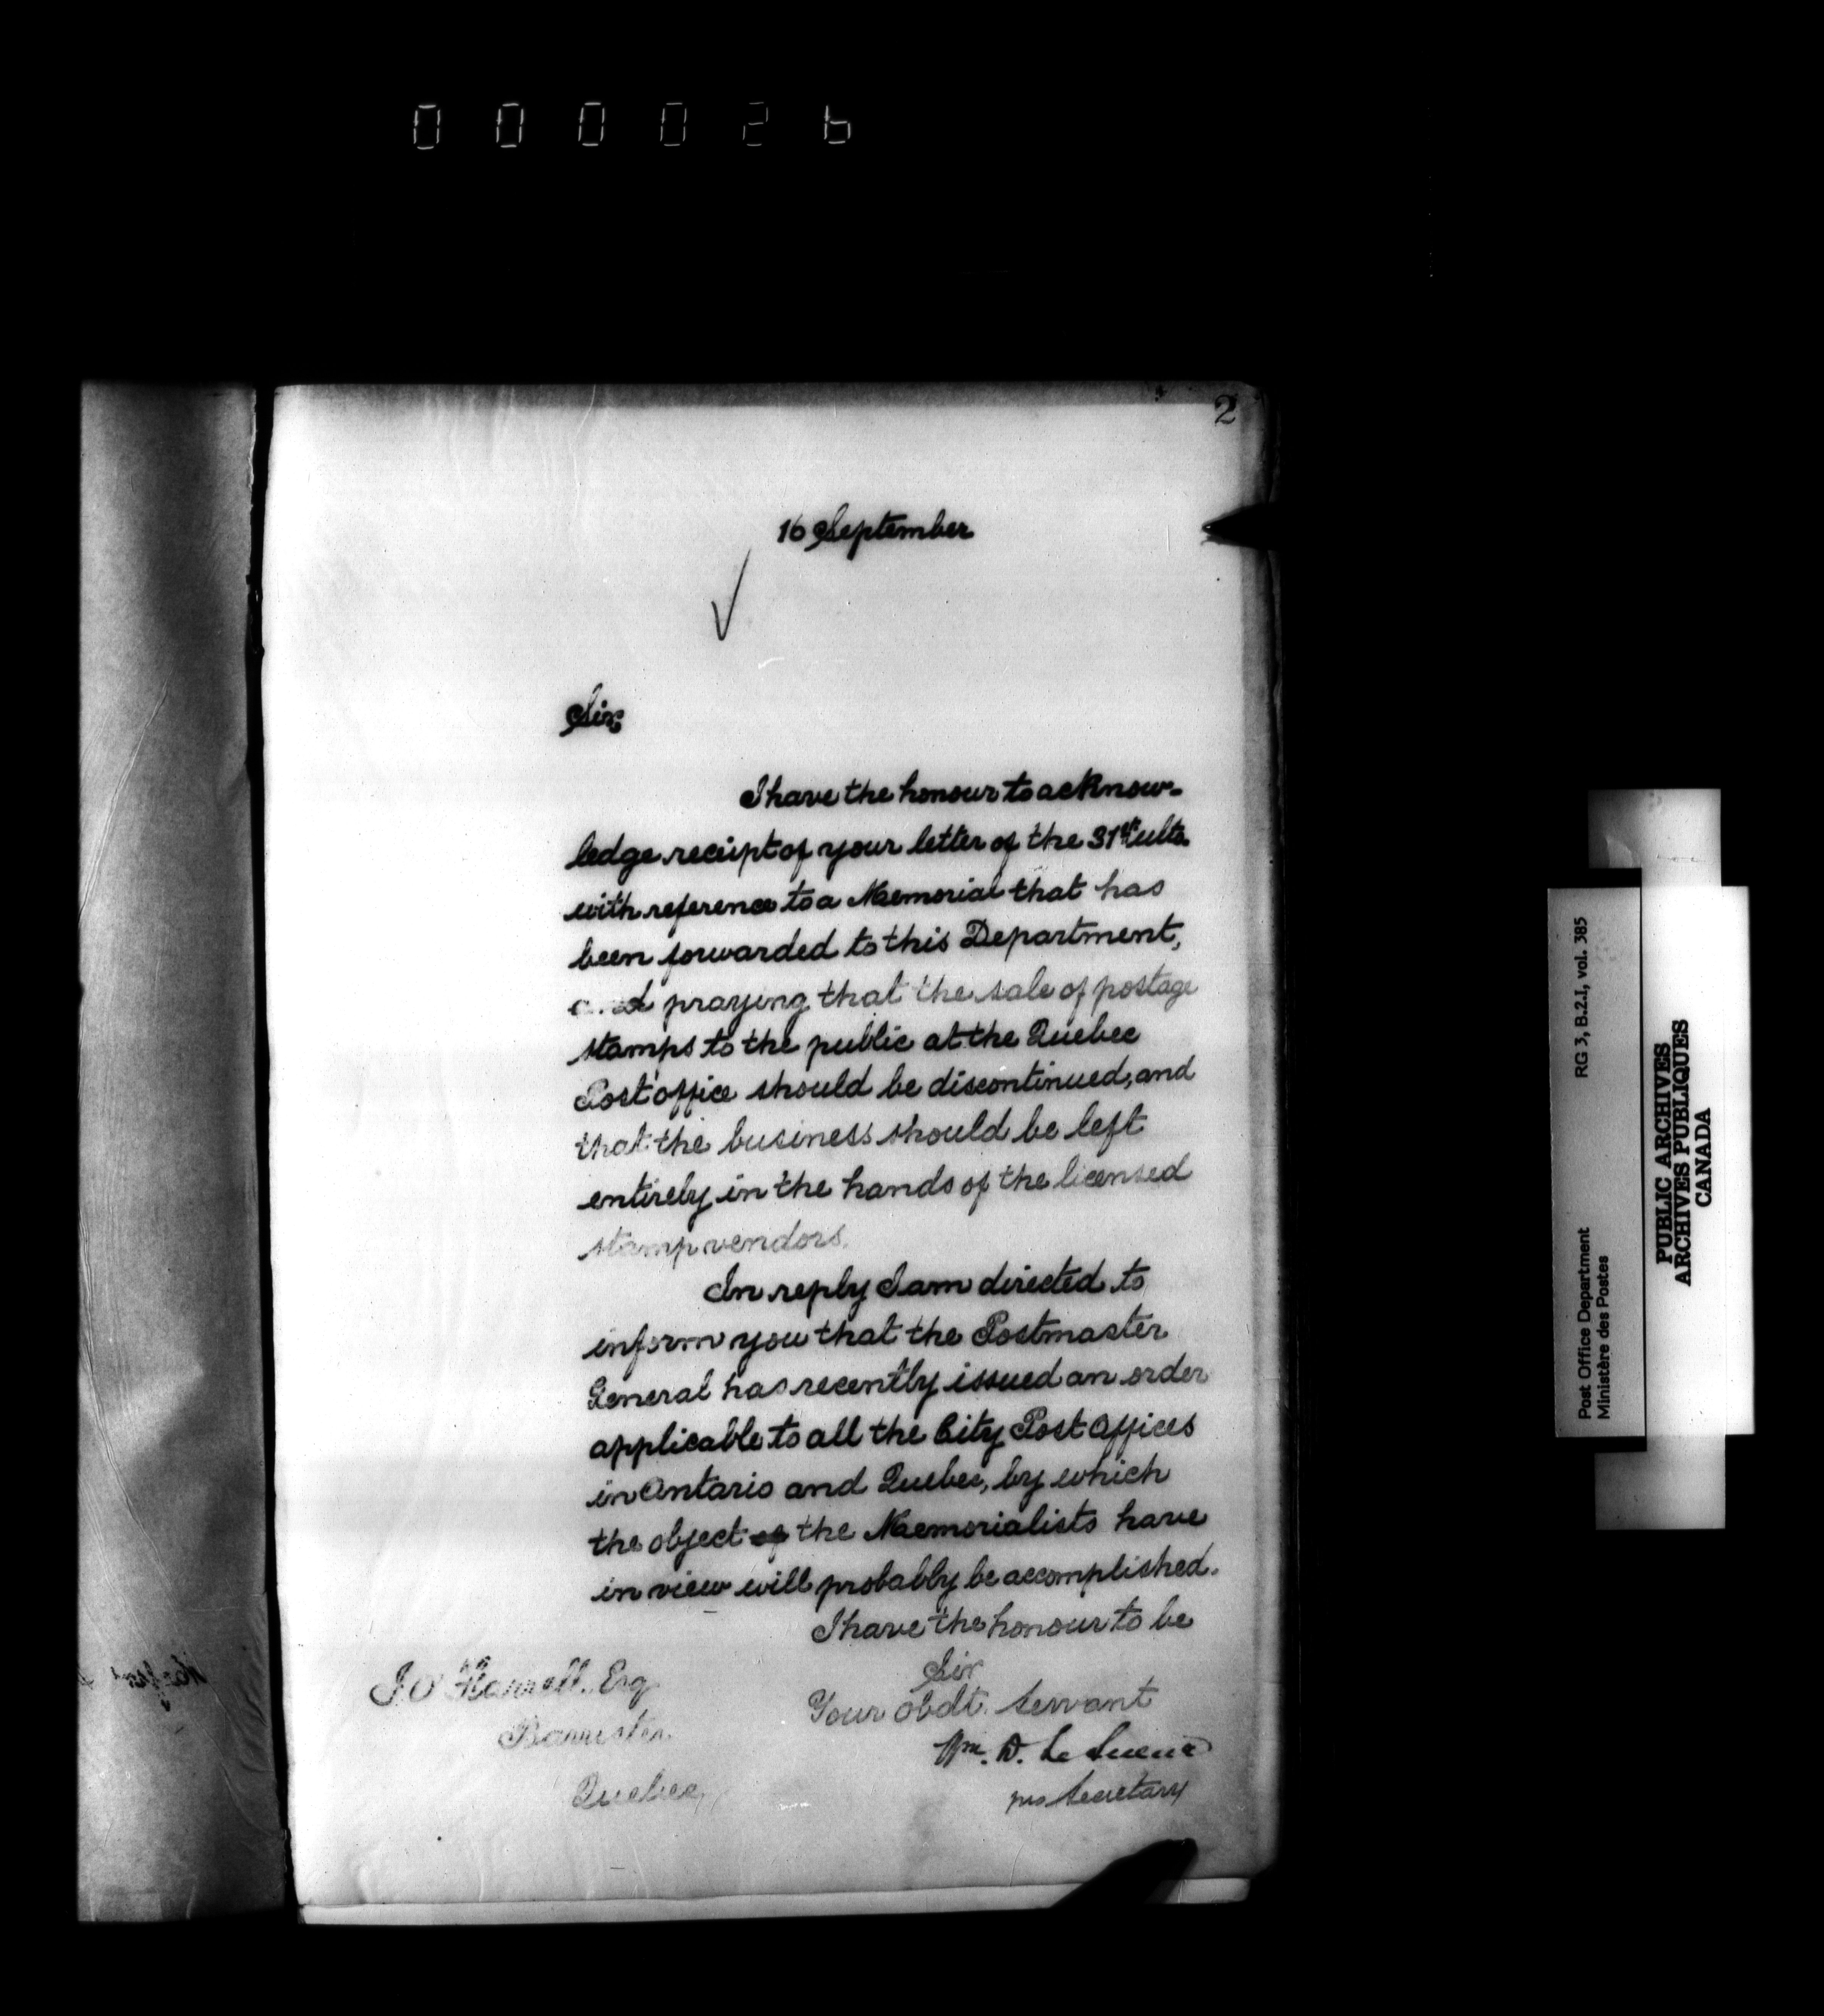 000026
2
16 September
Sir,
I have the honour to acknow-
ledge receipt of your letter of the 31st ulto.
with reference to a Memorial that has
been forwarded to this Department,
and praying that the sale of postage
stamps to the public at the Quebec
Post office should be discontinued, and
that the business should be left
entirely in the hands of the licensed
stamp vendors.
In reply I am directed to
inform you that the Postmaster
General has recently issued an order
applicable to all the City Post Offices
in Ontario and Quebec, by which
the object of the Memorialists have
in view will probably be accomplished.
I have the honour to be
Sir
Your obdt. Servant
Wm. D. Le Sueur
pro Secretary
J. O'Farrell. Esq
Barrister
Quebec,
Post Office Department RG 3, B.2.I, vol. 385
Ministère des Postes
PUBLIC ARCHIVES
ARCHIVES PUBLIQUES
CANADA